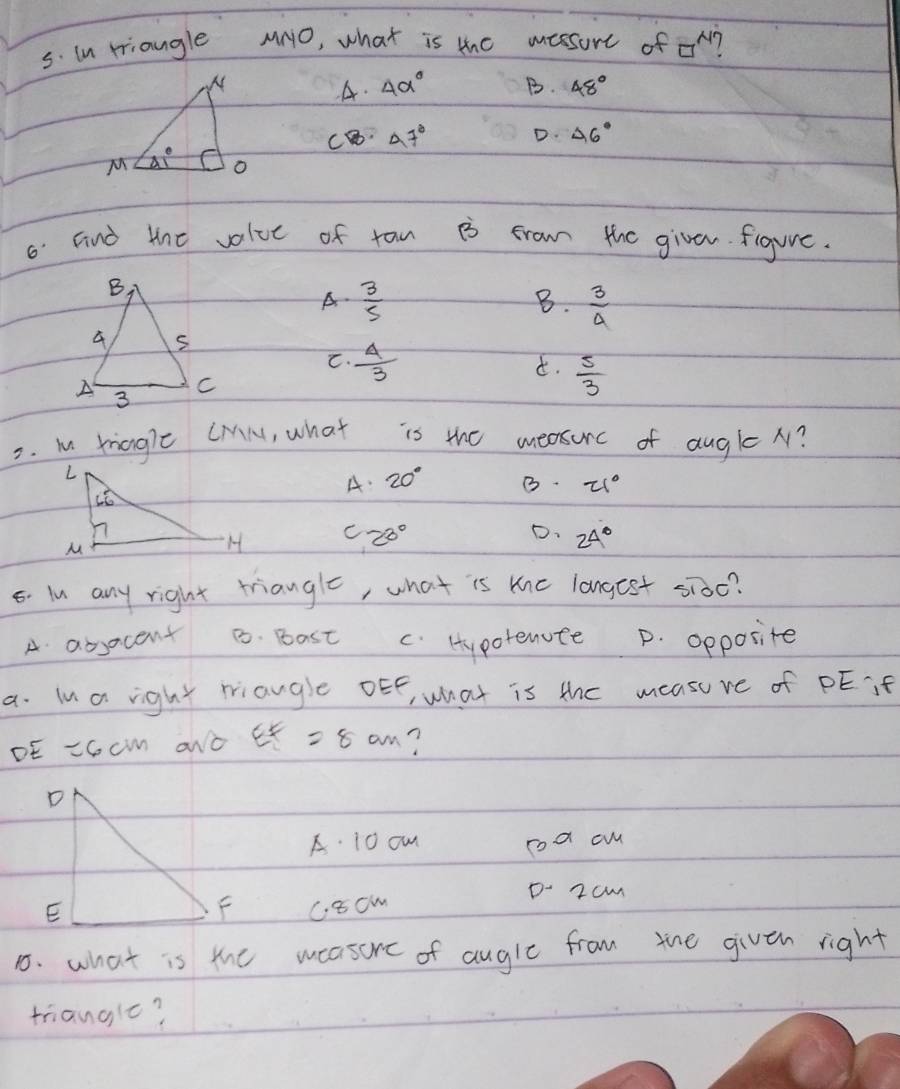 5. In triangle MNO, what is the measure of □N?
A. 49° B. 48°
C. 47° D. 46°
N
M 41° O
6. Find the value of tan B from the given figure.
B
4 5
A 3 C
A. 3/5 B. 3/4
C. 4/3 d. 5/3
7. In triangle LMN, what is the measure of angle N?
L
M N
A. 20° B. 21°
C. 23° D. 24°
8. In any right triangle, what is the longest side?
A. adjacent B. Base C. Hypotenuse D. opposite
9. In a right triangle DEF, what is the measure of DE if
DE = 6 cm and EF = 8 cm?
D
E F
A. 10 cm B 9 cm
C. 8 cm D. 2 cm
10. what is the measure of angle from the given right
triangle?